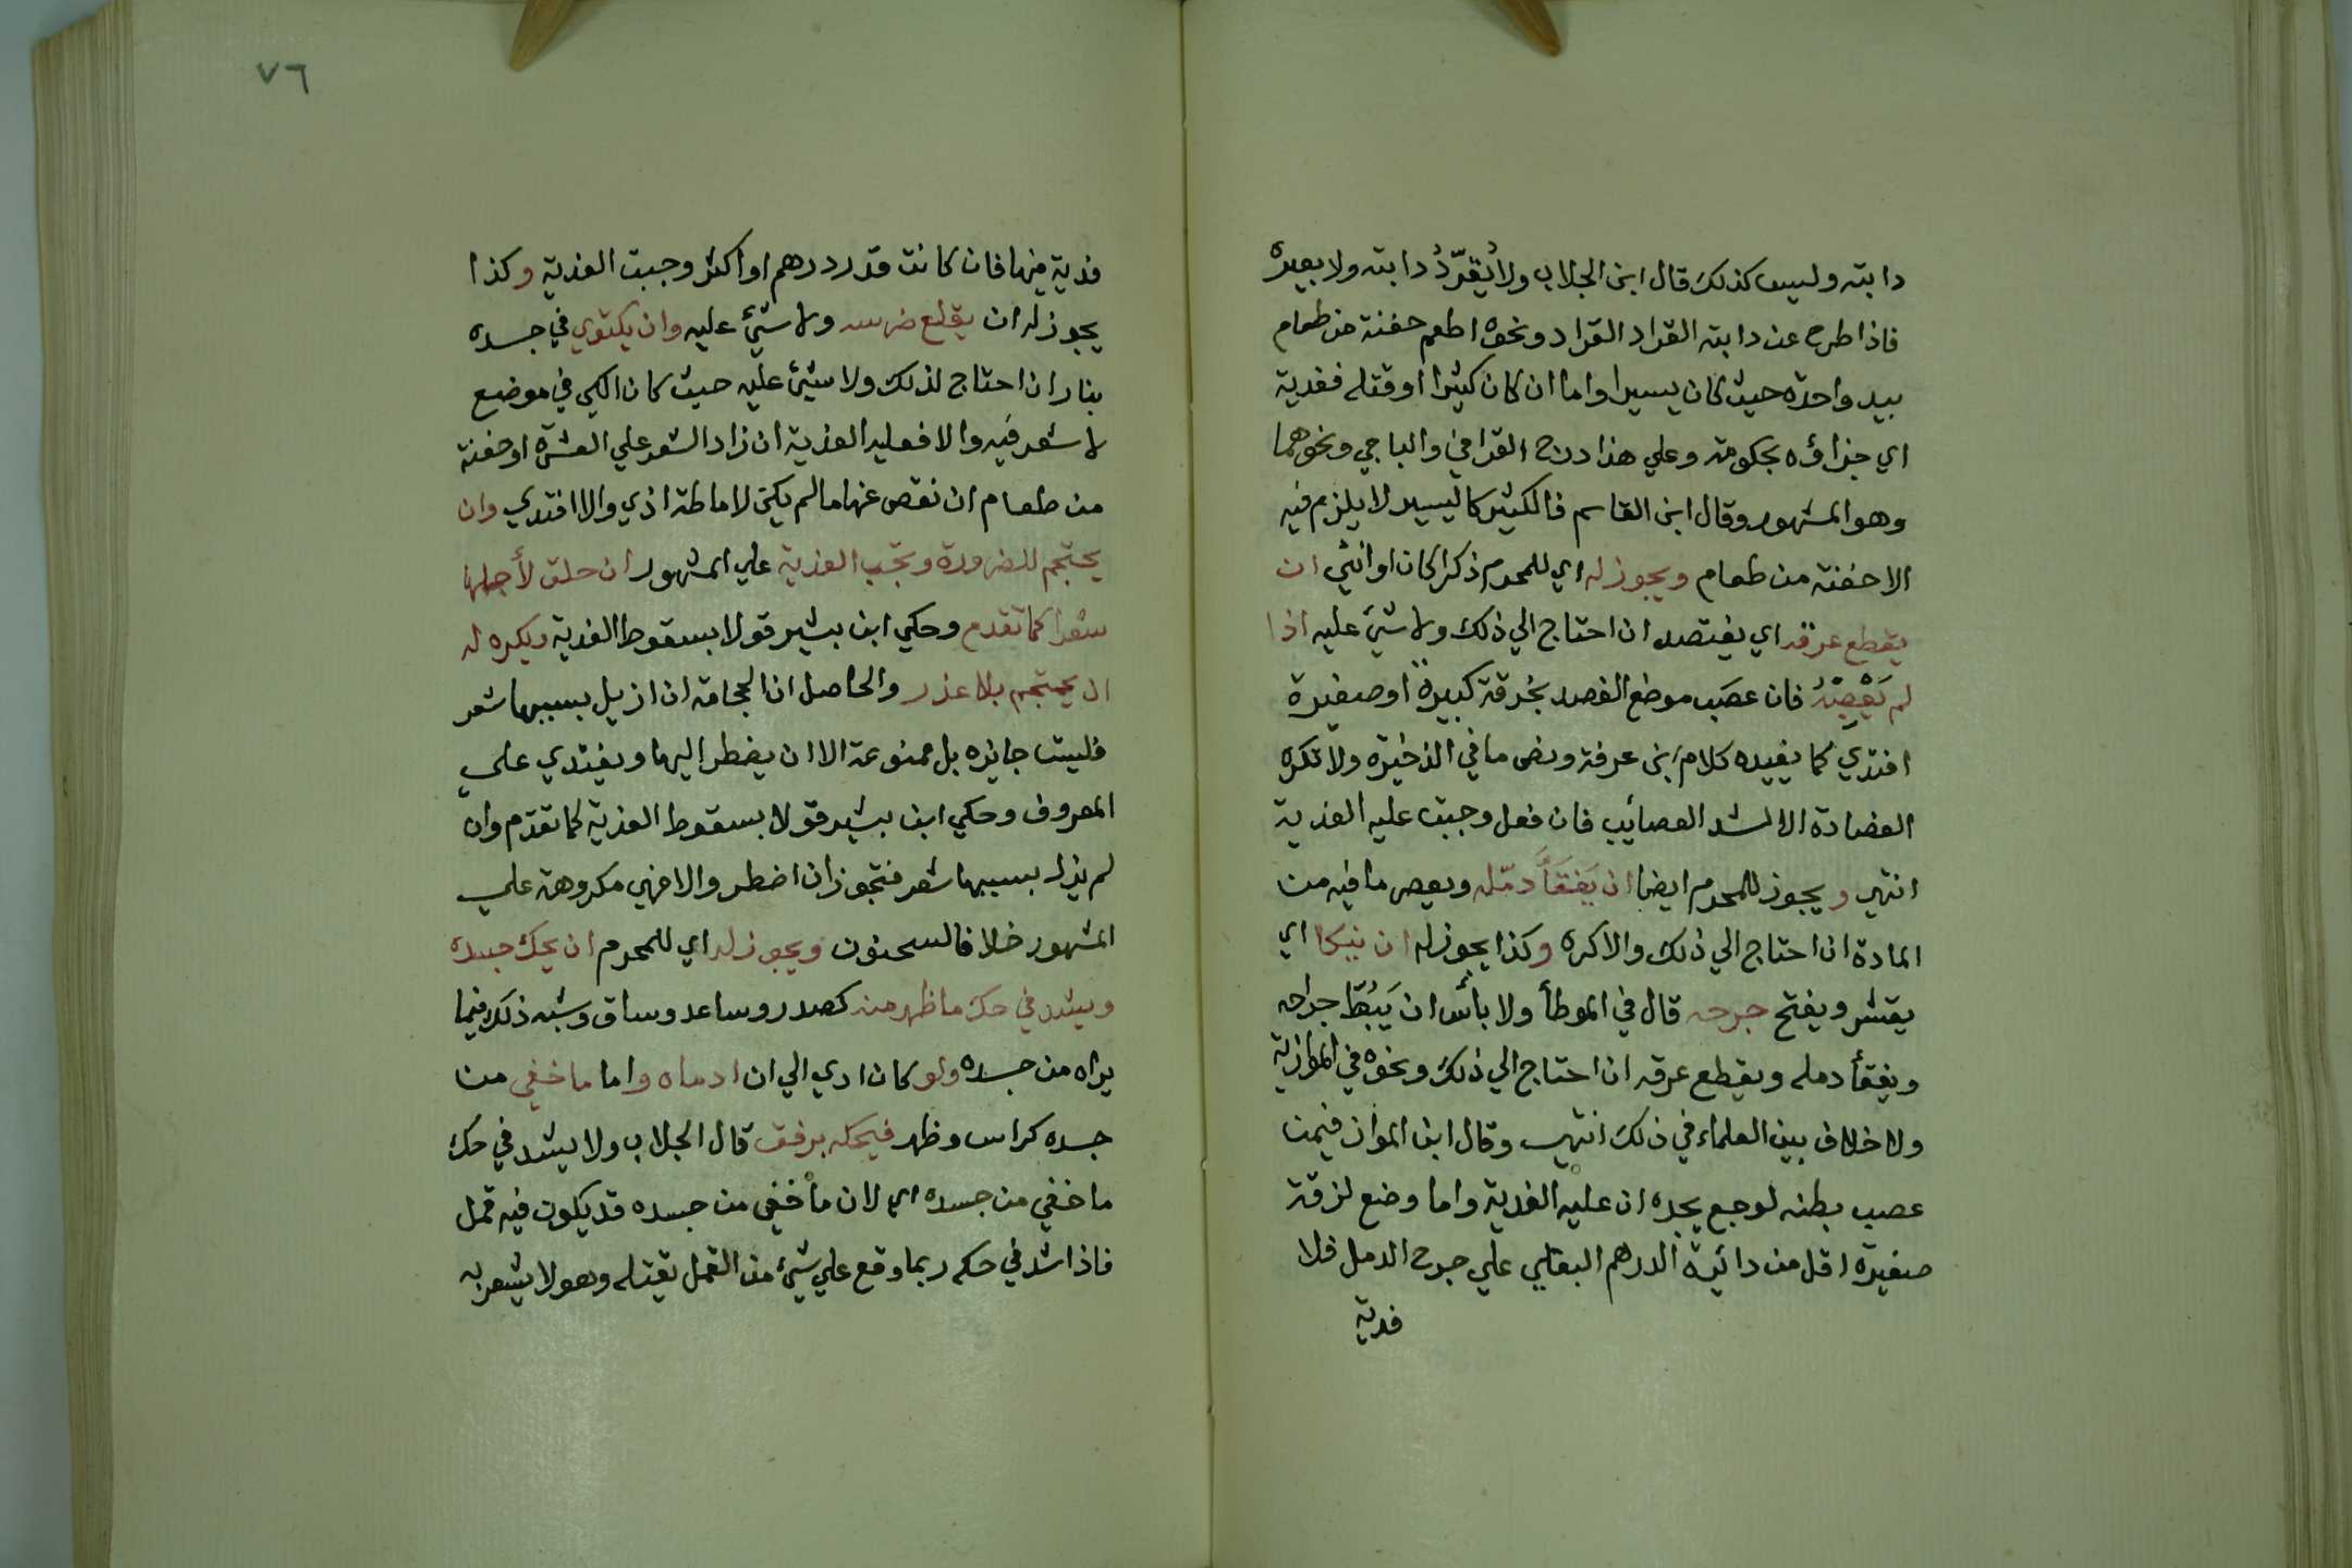 دابته وليس كذلك قال ابن الجلاب ولا يُقرّدُ دابته ولا بعيره
فاذا طرح عن دابته القراد القراد ونحوه اطعم حفنة من طعام
بيد واحدة حيث كان يسيرا واما ان كان كثيرا او قتله ففدية
اي جزاؤه بحكومة وعلي هذا درج القرافي والباجي ونحوهما
وهو المشهور وقال ابن القاسم فالكثير كاليسير لا يلزم فيه
الا حفنة من طعام ويجوز له اي للمحرم ذكرا كان او انثي ان
يقطع عرقه اي يفتصد ان احتاج الي ذلك ولا شيء عليه اذا
لم يَعْصِبْهُ فان عصَب موضع الفصد بخرقة كبيرة او صغيرة
افتدي كما يفيده كلام ابن عرفة ونص ما في الذخيرة ولا تكره
الفصادة الا لشد العصائب فان فعل وجبت عليه الفدية
انتهي ويجوز للمحرم ايضا ان يَفقَأَ دمّله ويعصر ما فيه من
المادة ان احتاج الي ذلك والا كره وكذا يجوز له ان ينكا اي
يقشر ويفتح جرحه قال في الموطأ ولا بأس ان يَبُطّ جراحه
ويفقأ دمله ويقطع عرقه ان احتاج الي ذلك ونحوه في الموازية
ولا خلاف بين العلماء في ذلك انتهي وقال ابن المواز فيمن
عصب بطنه لوجع يجده ان عليه الفدية واما وضع لزقة
صغيرة اقل من دائرة الدرهم البغلي علي جرح الدمل فلا
فدية
٧٦
فدية فيها فان كانت قدر درهم او اكثر وجبت الفدية وكذا
يجوز له ان يقلع ضرسه ولا شيء عليه وان يكتوي في جسده
بنار ان احتاج لذلك ولا شيئ عليه حيث كان الكي في موضع
لا شعر فيه والا فعليه الفدية ان زاد الشعر علي العشرة او حفنة
من طعام ان نقص عنها ما لم يكن لاماطة اذي والا افتدي وان
يحتجم للضرورة وتجب الفدية علي المشهور ان حلق لأجلها
شعرا كما تقدم وحكي ابن بشير قولا بسقوط الفدية ويكره له
ان يحتجم بلا عذر والحاصل ان الحجامة ان ازيل بسببها شعر
فليست جايزه بل ممنوعة الا ان يضطر اليها ويفتدي علي
المعروف وحكي ابن بشير قولا بسقوط الفدية كما تقدم وان
لم يزل بسببها شعر فتجوز ان اضطر والا فهي مكروهة علي
المشهور خلافا لسحنون ويجوز له اي للمحرم ان يحك جسده
ويشدد في حك ما ظهر منه كصدر وساعد وساق وشبه ذلك فيما
يراه من جسده ولو كان ادي الي ان ادماه واما ما خفي من
جسده كراس وظهر فيحكه برفق قال الجلاب ولا يشد في حك
ما خفي من جسده اي لان ما خفي من جسده قد يكون فيه قمل
فاذا شد في حكه ربما وقع علي شيئ من القمل يقتله وهو لا يشعر به